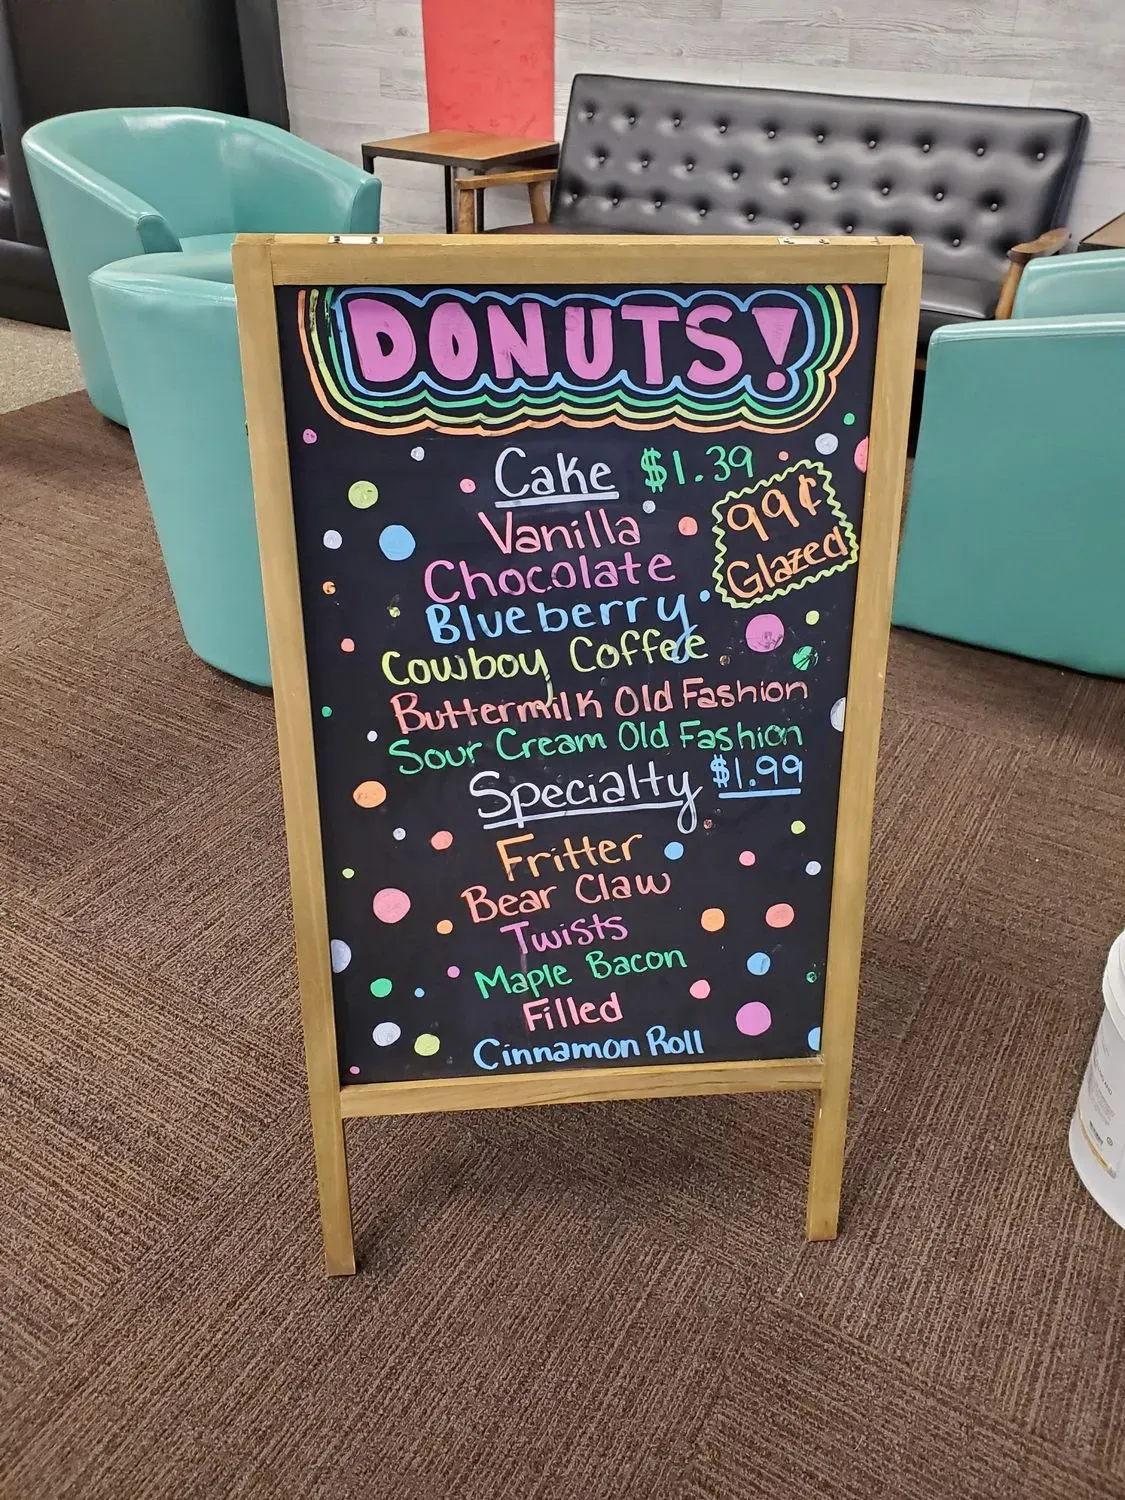 DONUTS!
Cake $1.39
99¢
Glazed
Vanilla
Chocolate
Blueberry
Cowboy Coffee
Buttermilk Old Fashion
Sour Cream Old Fashion
Specialty $1.99
Fritter
Bear Claw
Twists
Maple Bacon
Filled
Cinnamon Roll